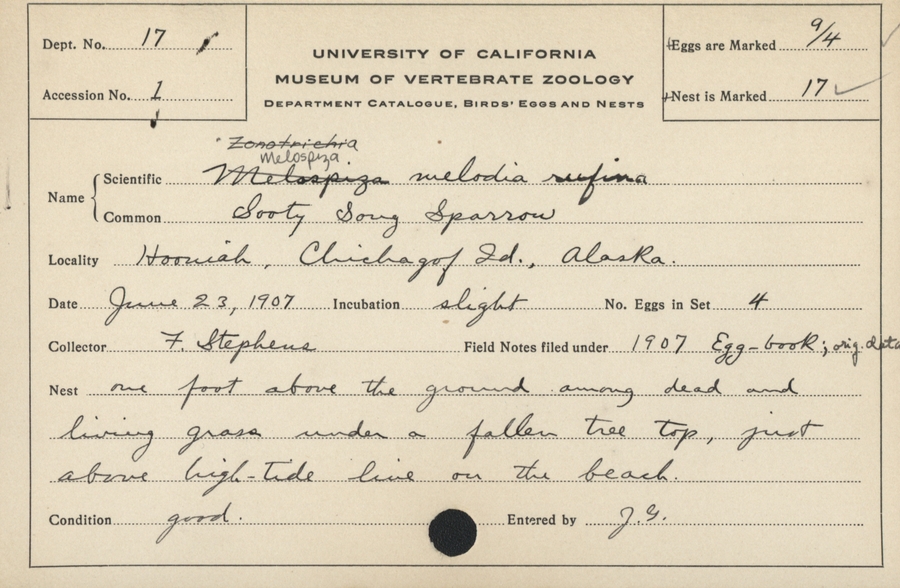 Dept. No. 17
Accession No. 1
UNIVERSITY OF CALIFORNIA
MUSEUM OF VERTEBRATE ZOOLOGY
DEPARTMENT CATALOGUE, BIRDS' EGGS AND NESTS
Eggs are Marked 9/4
Nest is Marked 17 ✓
Zonotrichia
Melospiza
Name Scientific Melospiza melodia rufina
Common Sooty Song Sparrow
Locality Hooniah, Chichagof Id., Alaska.
Date June 23, 1907 Incubation slight No. Eggs in Set 4
Collector F. Stephens Field Notes filed under 1907 Egg-book; orig. data
Nest one foot above the ground among dead and
living grass under a fallen tree top, just
above high-tide line on the beach.
Condition good. Entered by J.G.